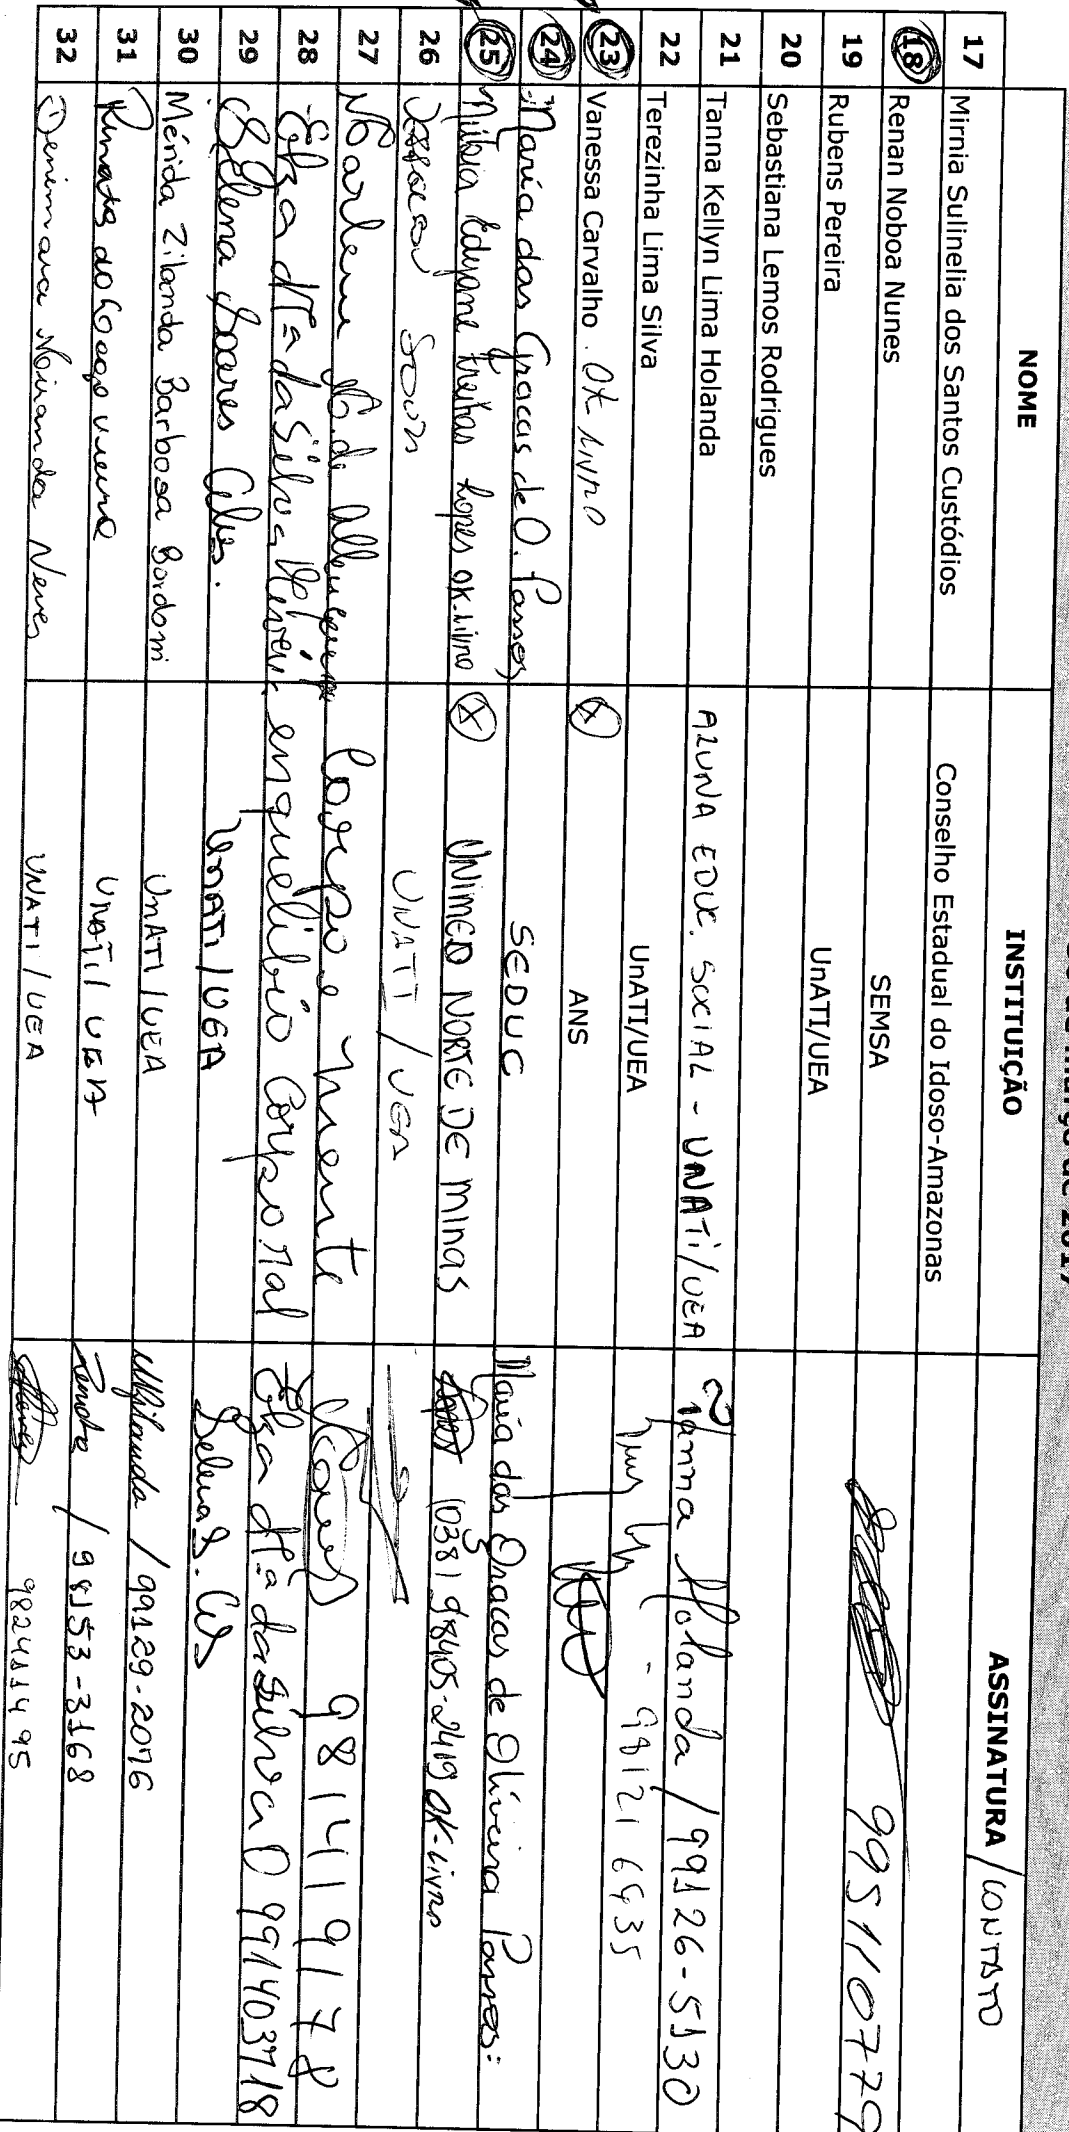 de março de 2017
NOME INSTITUIÇÃO ASSINATURA / CONTATO
17 Mirnia Sulinelia dos Santos Custódios Conselho Estadual do Idoso-Amazonas
18 Renan Noboa Nunes SEMSA 995110779
19 Rubens Pereira UnATI/UEA
20 Sebastiana Lemos Rodrigues
21 Tanna Kellyn Lima Holanda ALUNA EDUC. SOCIAL - UNATI/UEA Tanna Holanda / 99126-5130
22 Terezinha Lima Silva UnATI/UEA - 98121 6935
23 Vanessa Carvalho . OK LIVRO X ANS
24 Maria das Graças de O. Passos SEDUC Maria das Graças de Oliveira Passos:
25 Edyane Freitas Lopes OK.Livro X UNIMED NORTE DE MINAS 038 1 98405-2419 OK-Livro
26 UNATI / UEA
27 Corpo e mente 981419178
28 Elza Mª da Silva enquelibrio Corporal Elza Mª da Silva 991403718
29 Selena Soares Alves. UnATI/UEA
30 Mérida Zilanda Barbosa Bordoni UnATI/UEA MZilanda / 99129-2076
31 Renata do UnATI / UEA Renata / 98153-3168
32 Miranda Neves UNATI / UEA 982411495